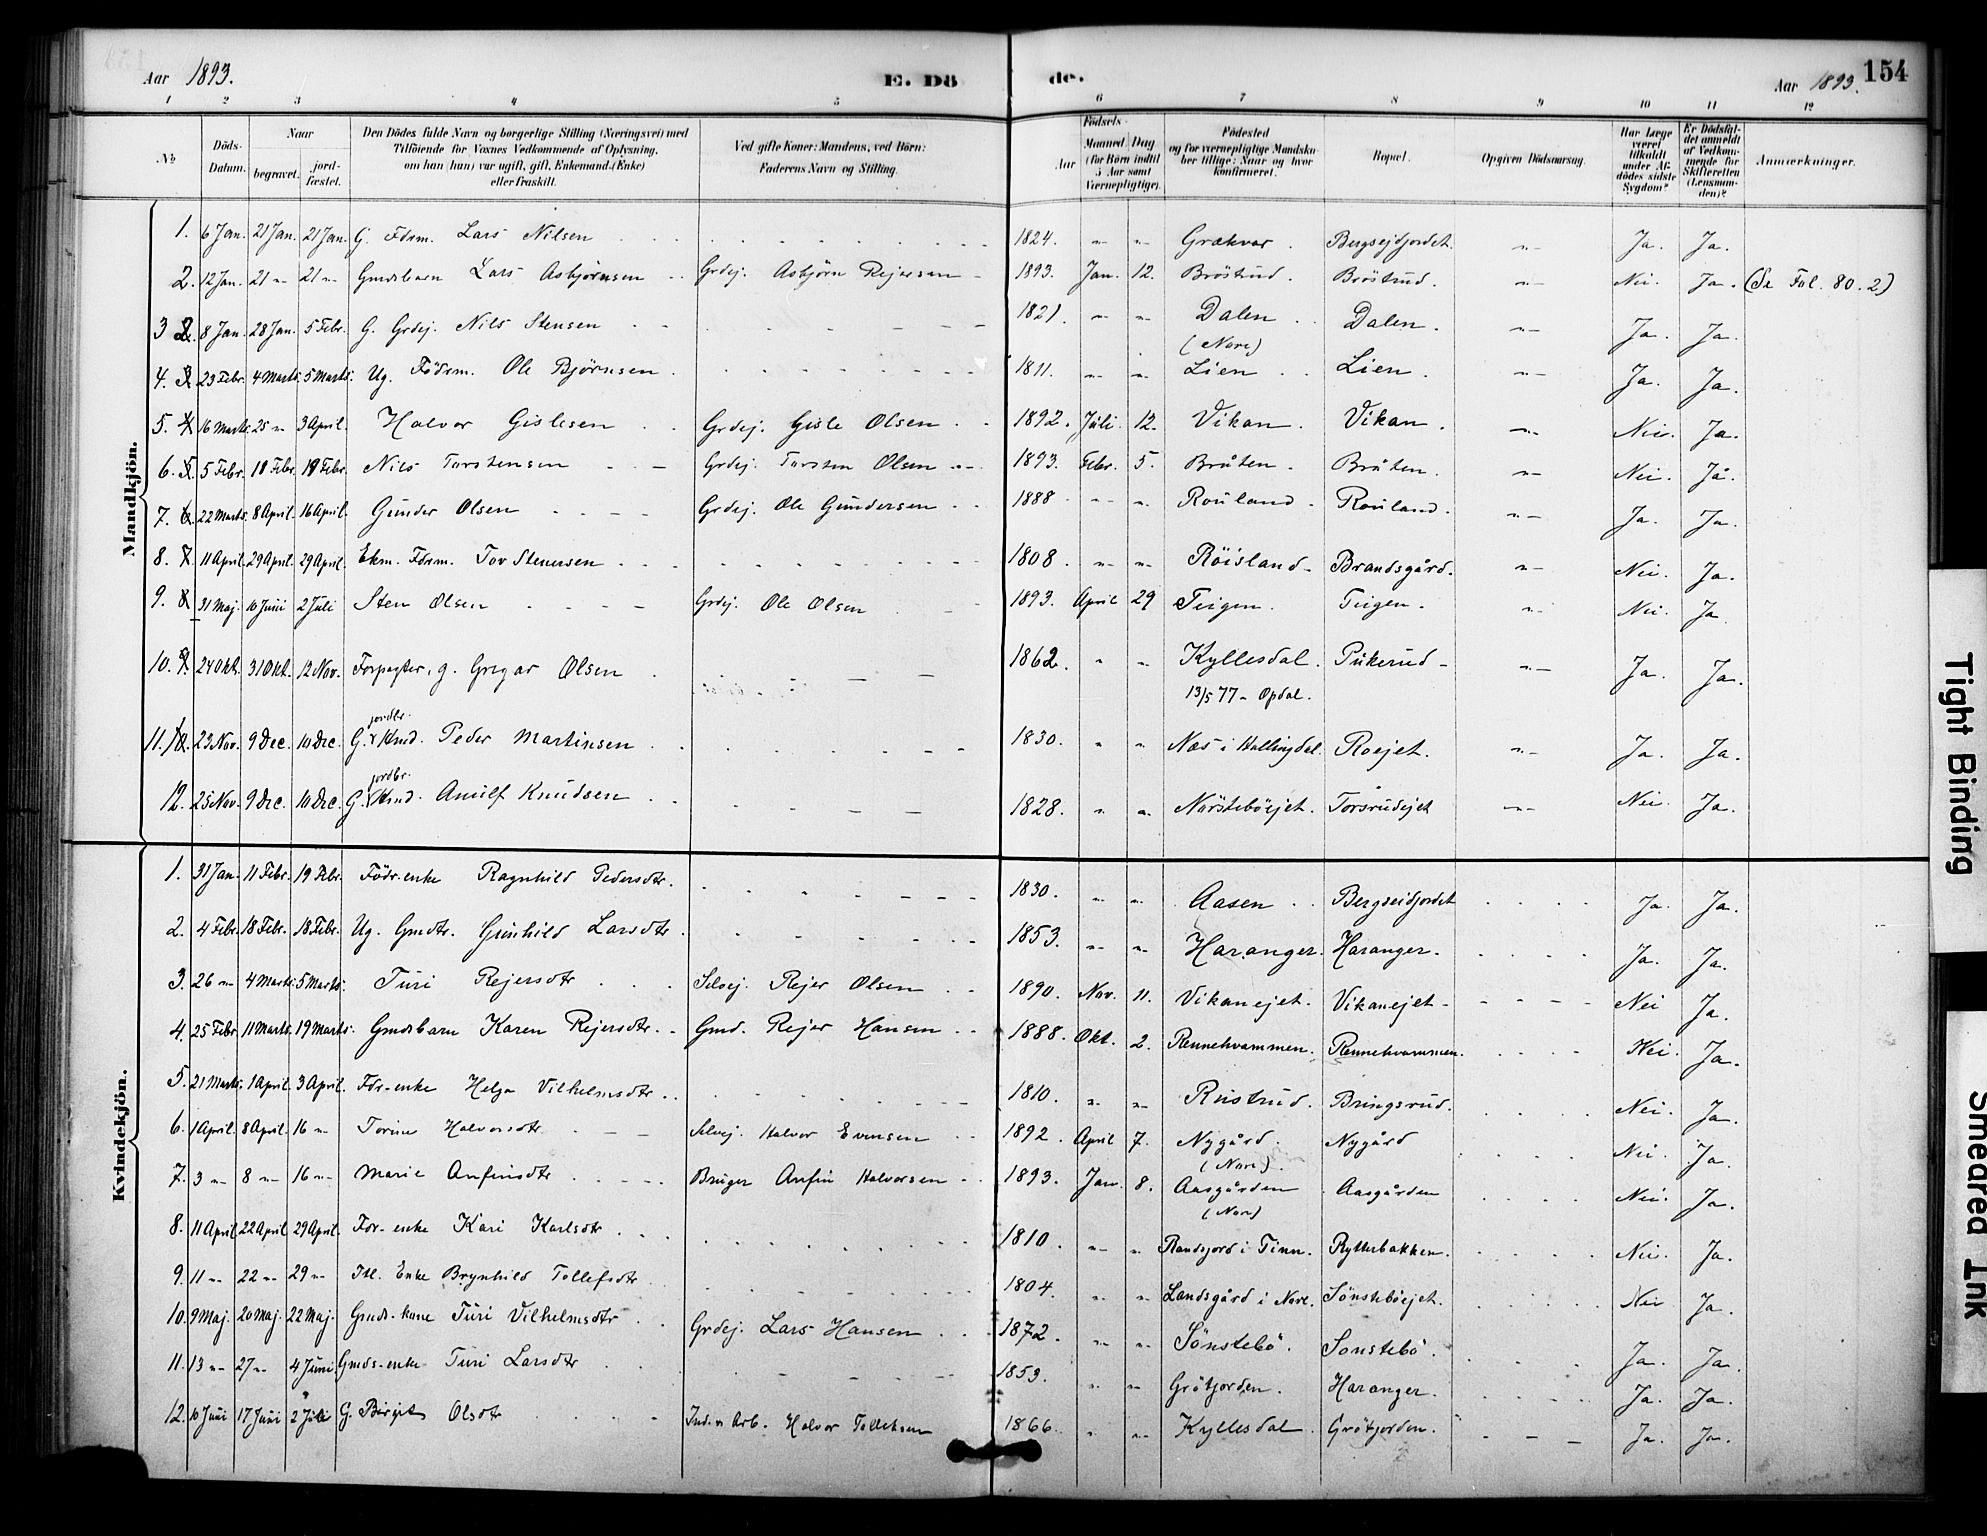 Aar 1893. E. Dö de. Aar 1893. 154
1 2 3 4 5 6 7 8 9 10 11 12
No
Döds-Datum.
Naar
begravet.
jordfæstet.
Den Dödes fulde Navn og borgerlige Stilling (Næringsvei) med
Tilföiende for Voxnes Vedkommende af Oplysning,
om han (hun) var ugift, gift, Enkemand (Enke)
eller fraskilt.
Ved gifte Koner: Mandens, ved Börn:
Faderens Navn og Stilling.
Födsels-
Aar
Maaned Dag
(for Börn indtil
5 Aar samt
Værnepligtige).
Födested
og for værnepligtige Mandska-
ber tillige: Naar og hvor
konfirmeret.
Bopæl.
Opgiven Dödsaarsag.
Har Læge
været
tilkaldt
under Af-
dödes sidste
Sygdom?
Er Dödsfal-
det anmeldt
af Vedkom-
mende for
Skifteretten
(Lensman-
den)?
Anmærkninger.
Mandkjön.
1. 6 Jan. 21 Jan. 21 Jan. G. Fdrm. Lars Nilsen 1824. " " Grækvar. Bergsejdfjordet. " Ja. Ja.
2. 12 Jan. 21 " 21 " Gmdsbarn Lars Asbjørnsen Grdej. Asbjørn Rejersen 1893. Jan. 12. Bröstrud. Bröstrud. " Nei. Ja. (Se Fol. 80. 2)
3 2. 8 Jan. 28 Jan. 5 Febr. G. Grdej. Nils Stensen 1821. " " Dalen (Nore) Dalen. " Ja. Ja.
4. 3. 23 Febr. 4 Marts. 5 Marts. Ug. Födrm. Ole Bjørnsen. 1811. " " Lien Lien. " Ja. Ja.
5. 4. 16 Marts. 25 " 3 April. Halvor Gislesen Grdej. Gisle Olsen 1892. Juli. 12. Vikan. Vikan. " Nei. Ja.
6. 5. 5 Febr. 18 Febr. 18 Febr. Nils Torstensen Grdej. Torsten Olsen 1893. Febr. 5. Bråten. Bråten. " Nei. Ja.
7. 6. 22 Marts. 8 April. 16 April. Gunder Olsen Grdej. Ole Gundersen 1888 " " Rouland. Rouland. " Ja. Ja.
8. 7. 11 April. 29 April. 29 April. Ekm. Fdrm. Tov Stenersen 1808. " " Röisland Brandsgård. " Nei. Ja.
9. 8. 31 Maj. 10 Juni 2 Juli Sten Olsen Grdej. Ole Olsen 1893. April 29 Teigen. Teigen. " Nei. Ja
10. 9. 24 Okt. 31 Okt. 12 Nov. Forpagter, g. Gregar Olsen 1862. " " Kyllesdal. Pukerud " Ja. Ja.
13/5 77 - Opdal.
jordbr.
11. 10. 23 Nov. 9 Dec. 10 Dec. G. Kmd. Peder Martinsen 1830. " " Næs i Hallingdal. Roejet. " Ja. Ja.
jordbr.
12. 25 Nov. 9 Dec. 10 Dec. G. Kmd. Anulf Knudsen 1828. " " Norstebøejet. Torsrudejet " Nei. Ja.
Kvindekjön.
1. 31 Jan. 11 Febr. 19 Febr. Födr.enke Ragnhild Pedersdtr. 1830. " " Aasen Bergseidfjordet Ja. Ja.
2. 4 Febr. 18 Febr. 18 Febr. Ug. Gmdtr. Gunhild Larsdtr. 1853. " " Haranger. Haranger. Ja. Ja.
3. 26 " 4 Marts. 5 Marts. Turi Rejersdtr Selvej. Rejer Olsen 1890. Nov. 11. Vikanejet. Vikanejet Nei Ja.
4. 25 Febr 11 Marts. 19 Marts. Gmdsbarn Karen Rejersdtr. Gmd. Rejer Hansen 1888. Okt. 2. Rennehvammen. Rennehvammen. Nei. Ja.
5. 21 Marts. 1 April. 3 April. Fdr-enke Helga Vilhelmsdtr. 1810. " " Rustrud. Bringsrud. Nei. Ja.
6. 1 April. 8 April. 16 " Torine Halvorsdtr. Selvej. Halvor Evensen 1892. April 7. Nygård. (Nore). Nygård Nei. Ja.
7. 3 " 8 " 16 " Marie Anfinsdtr Bruger Anfin Halvorsen 1893. Jan. 8. Aasgården (Nore) Aasgården Nei. Ja.
8. 11 April. 22 April. 29 April. Fdr-enke Kari Karlsdtr 1810. " " Randsjord i Tinn. Rytterbakken. Nei. Ja.
9. 11 " 22 " 29 " Enke Brynhild Tollefsdtr. 1804. " " Landsgård i Nore. Sönstebøejet. Nei Ja.
10. 9 Maj. 20 Maj. 22 Maj. Gmds-kone Turi Vilhelmsdtr Grdej. Lars Hansen 1872. " " Sönstebö. Sonstebö. Ja. Ja.
11. 13 " 27 " 4 Juni Gmds-enke Turi Larsdtr 1859. " " Grötjorden. Haranger. Ja. Ja.
12. 10 Juni 17 Juni 2 Juli G. Birgit Olsdtr Arb. Halvor Tolleksen 1866. " " Kyllesdal. Grötjorden. Ja. Ja.
Tight Binding
Smeared Ink